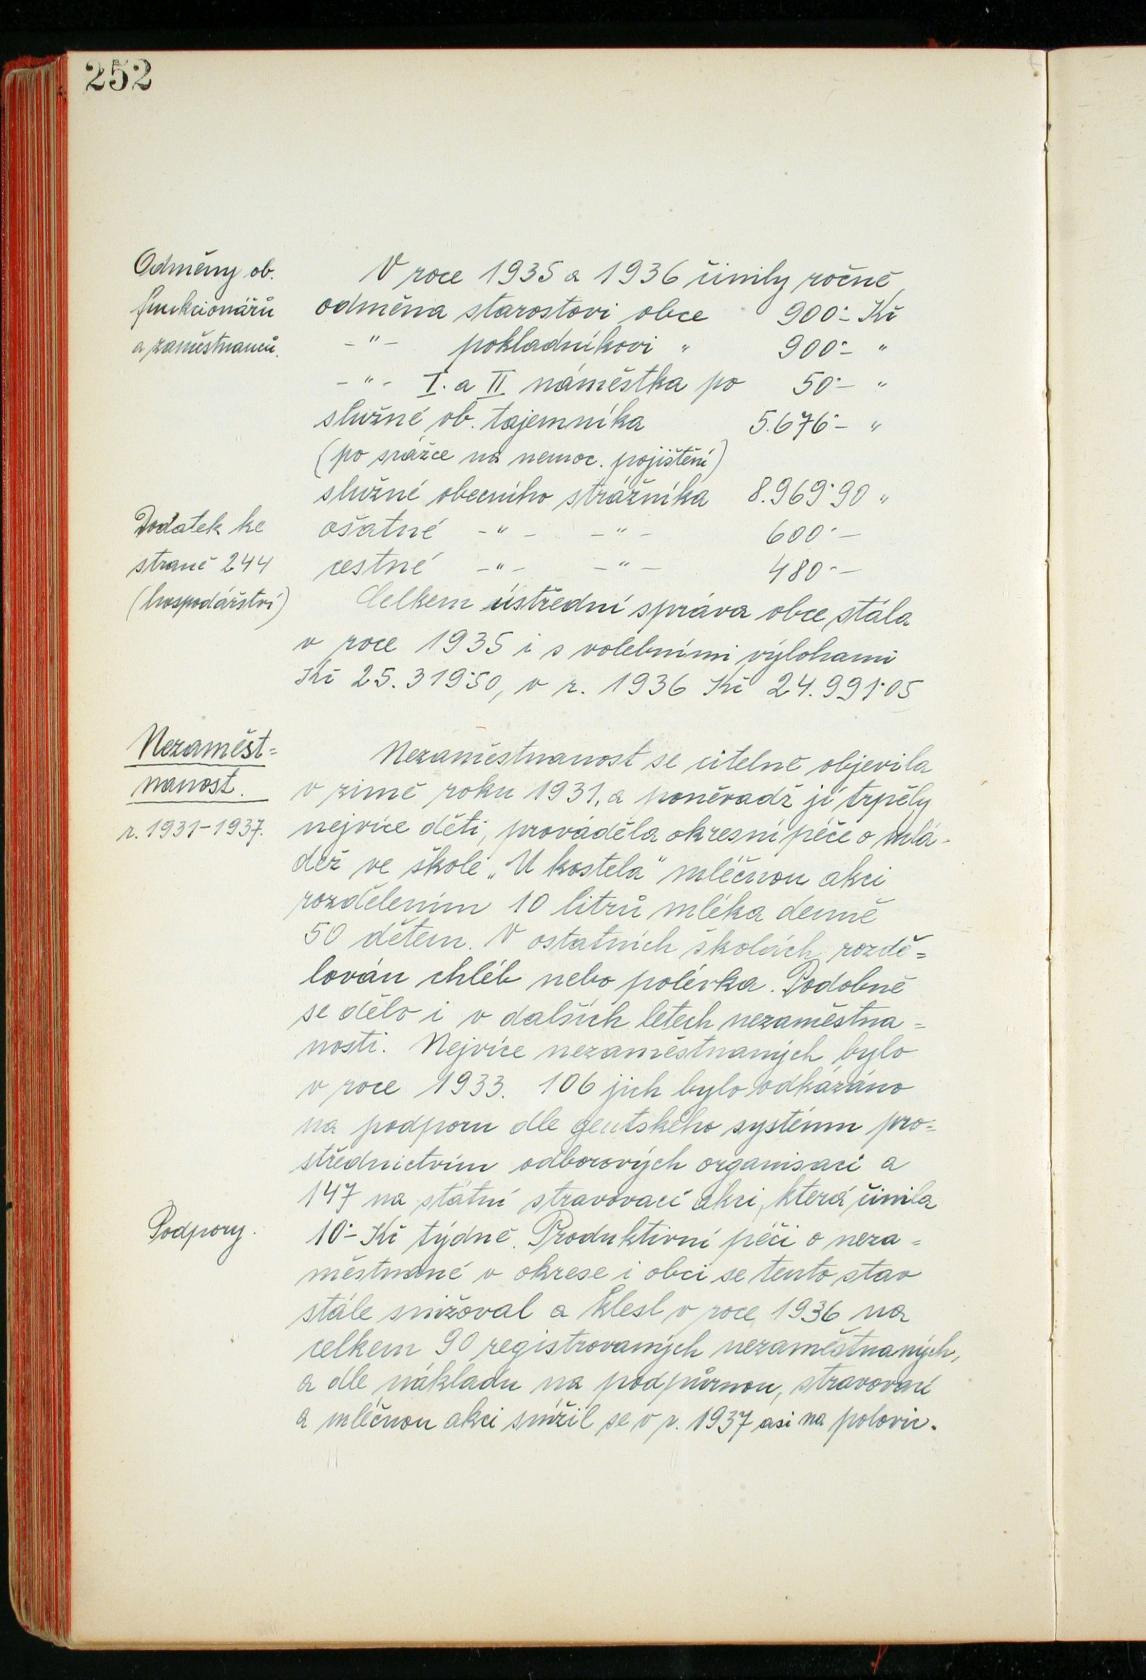 252
Odměny ob.
funkcionářů
a zaměstnanců.
V roce 1935 a 1936 činily ročně
odměna starostovi obce 900·- Kč
-"- pokladníkovi " 900·- "
-"- I. a II náměstka po 50·- "
služné ob. tajemníka 5.676·- "
(po srážce na nemoc. pojištění)
služné obecního strážníka 8.969·90 "
Dodatek ke
straně 244
(hospodářství)
ošatné -"- -"- 600·-
cestné -"- -"- 480·-
Celkem ústřední správa obce stála
v roce 1935 i s volebními výlohami
Kč 25.319·50, v r. 1936 Kč 24.991·05
Nezaměst=
nanost.
r. 1931-1937.
Nezaměstnanost se citelně objevila
v zimě roku 1931, a poněvadž jí trpěly
nejvíce děti, prováděla okresní péče o mlá-
dež ve škole „U kostela" mléčnou akci
rozdělením 10 litrů mléka denně
50 dětem. V ostatních školách rozdě=
lován chléb nebo polévka. Podobně
se dělo i v dalších letech nezaměstna=
nosti. Nejvíce nezaměstnaných bylo
v roce 1933. 106 jich bylo odkázáno
na podporu dle gentského systému pro=
střednictvím odborových organisací a
147 na státní stravovací akci, která činila
Podpory.
10·- Kč týdně. Produktivní péčí o neza=
městnané v okrese i obci se tento stav
stále snižoval a klesl v roce 1936 na
celkem 90 registrovaných nezaměstnaných,
a dle nákladu na podpůrnou, stravovací
a mléčnou akci snížil se v r. 1937 asi na polovic.